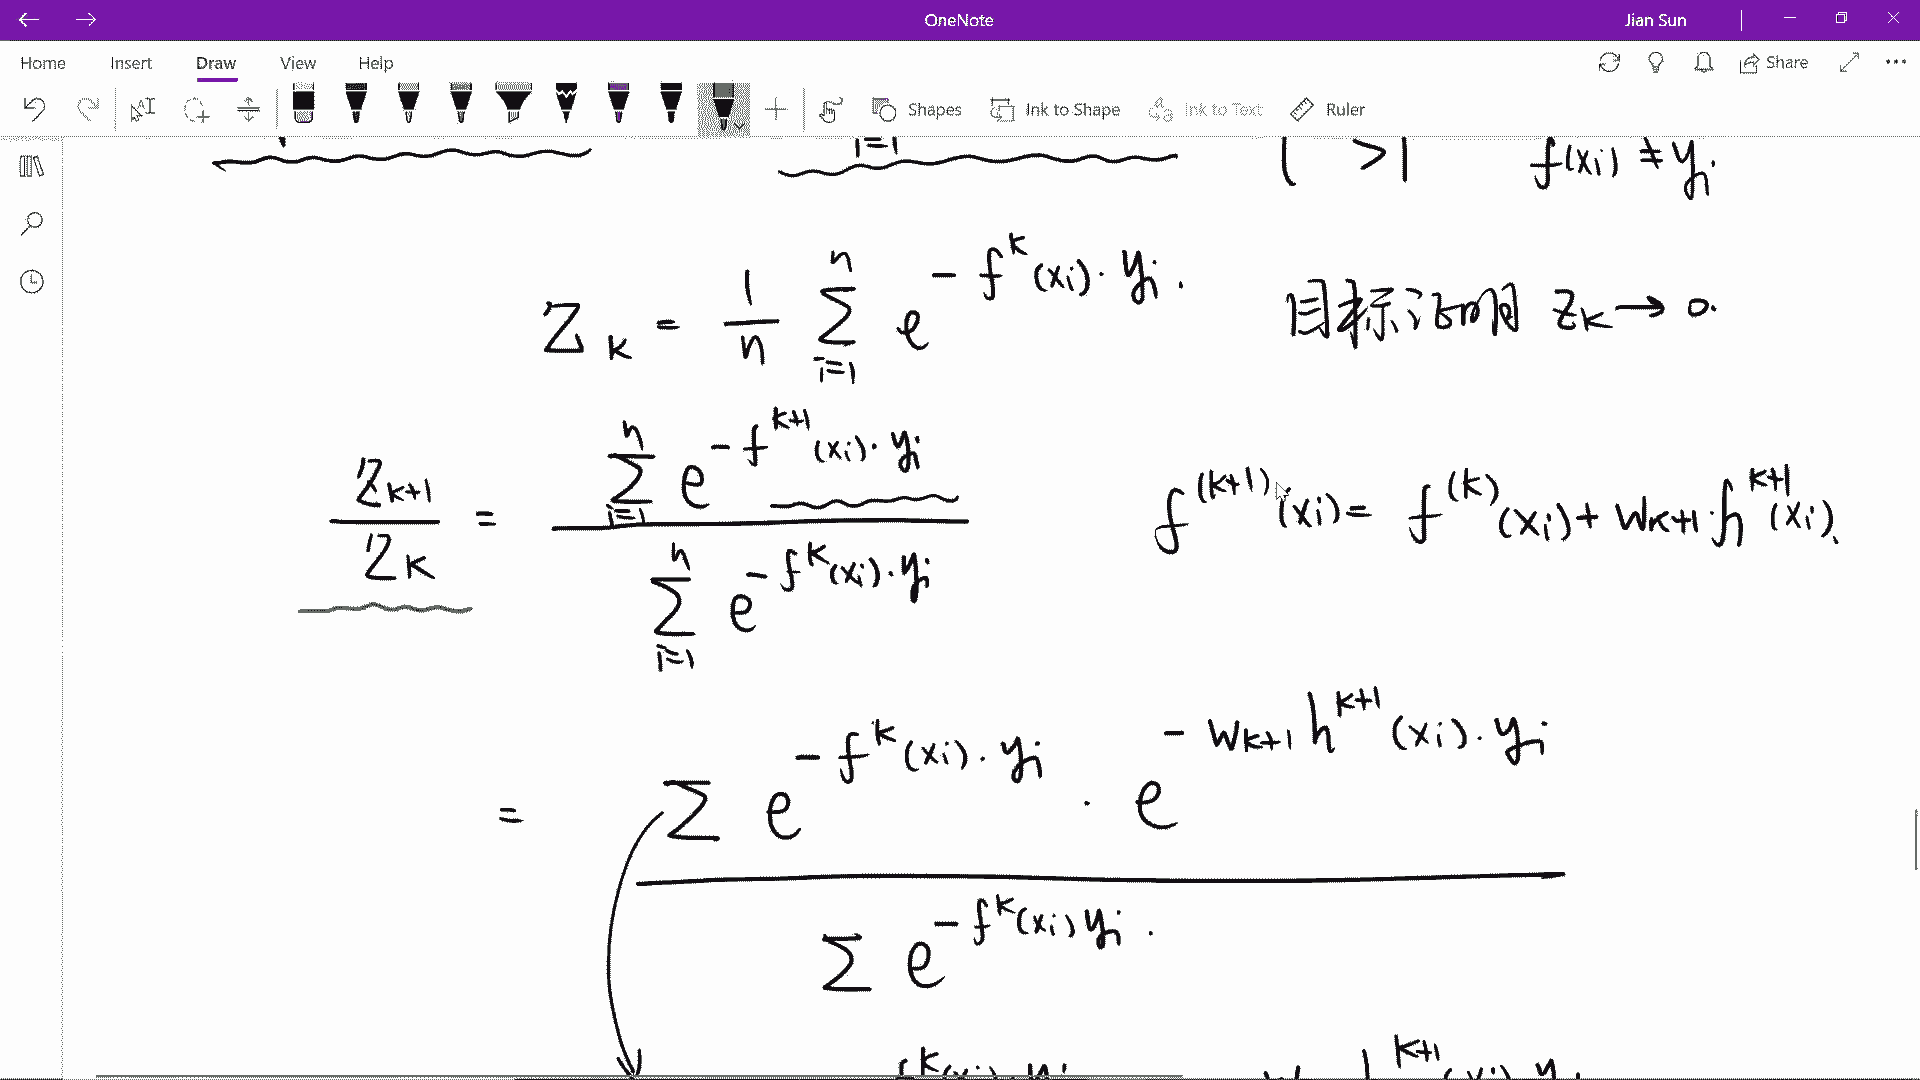 OneNote
Jian Sun
Home Insert Draw View Help
Share
Shapes Ink to Shape Ink to Text Ruler
i=1
>1 f(xi) ≠ yi
Z_k = 1/n Σ_{i=1}^{n} e^{-f^k(xi)·yi}. 目标证明 Z_k → 0.
Z_{k+1}/Z_k = Σ_{i=1}^{n} e^{-f^{k+1}(xi)·yi} / Σ_{i=1}^{n} e^{-f^k(xi)·yi}
f^{(k+1)}(xi) = f^{(k)}(xi) + w_{k+1}·h^{k+1}(xi).
= Σ e^{-f^k(xi)·yi} · e^{-w_{k+1} h^{k+1}(xi)·yi} / Σ e^{-f^k(xi) yi}.